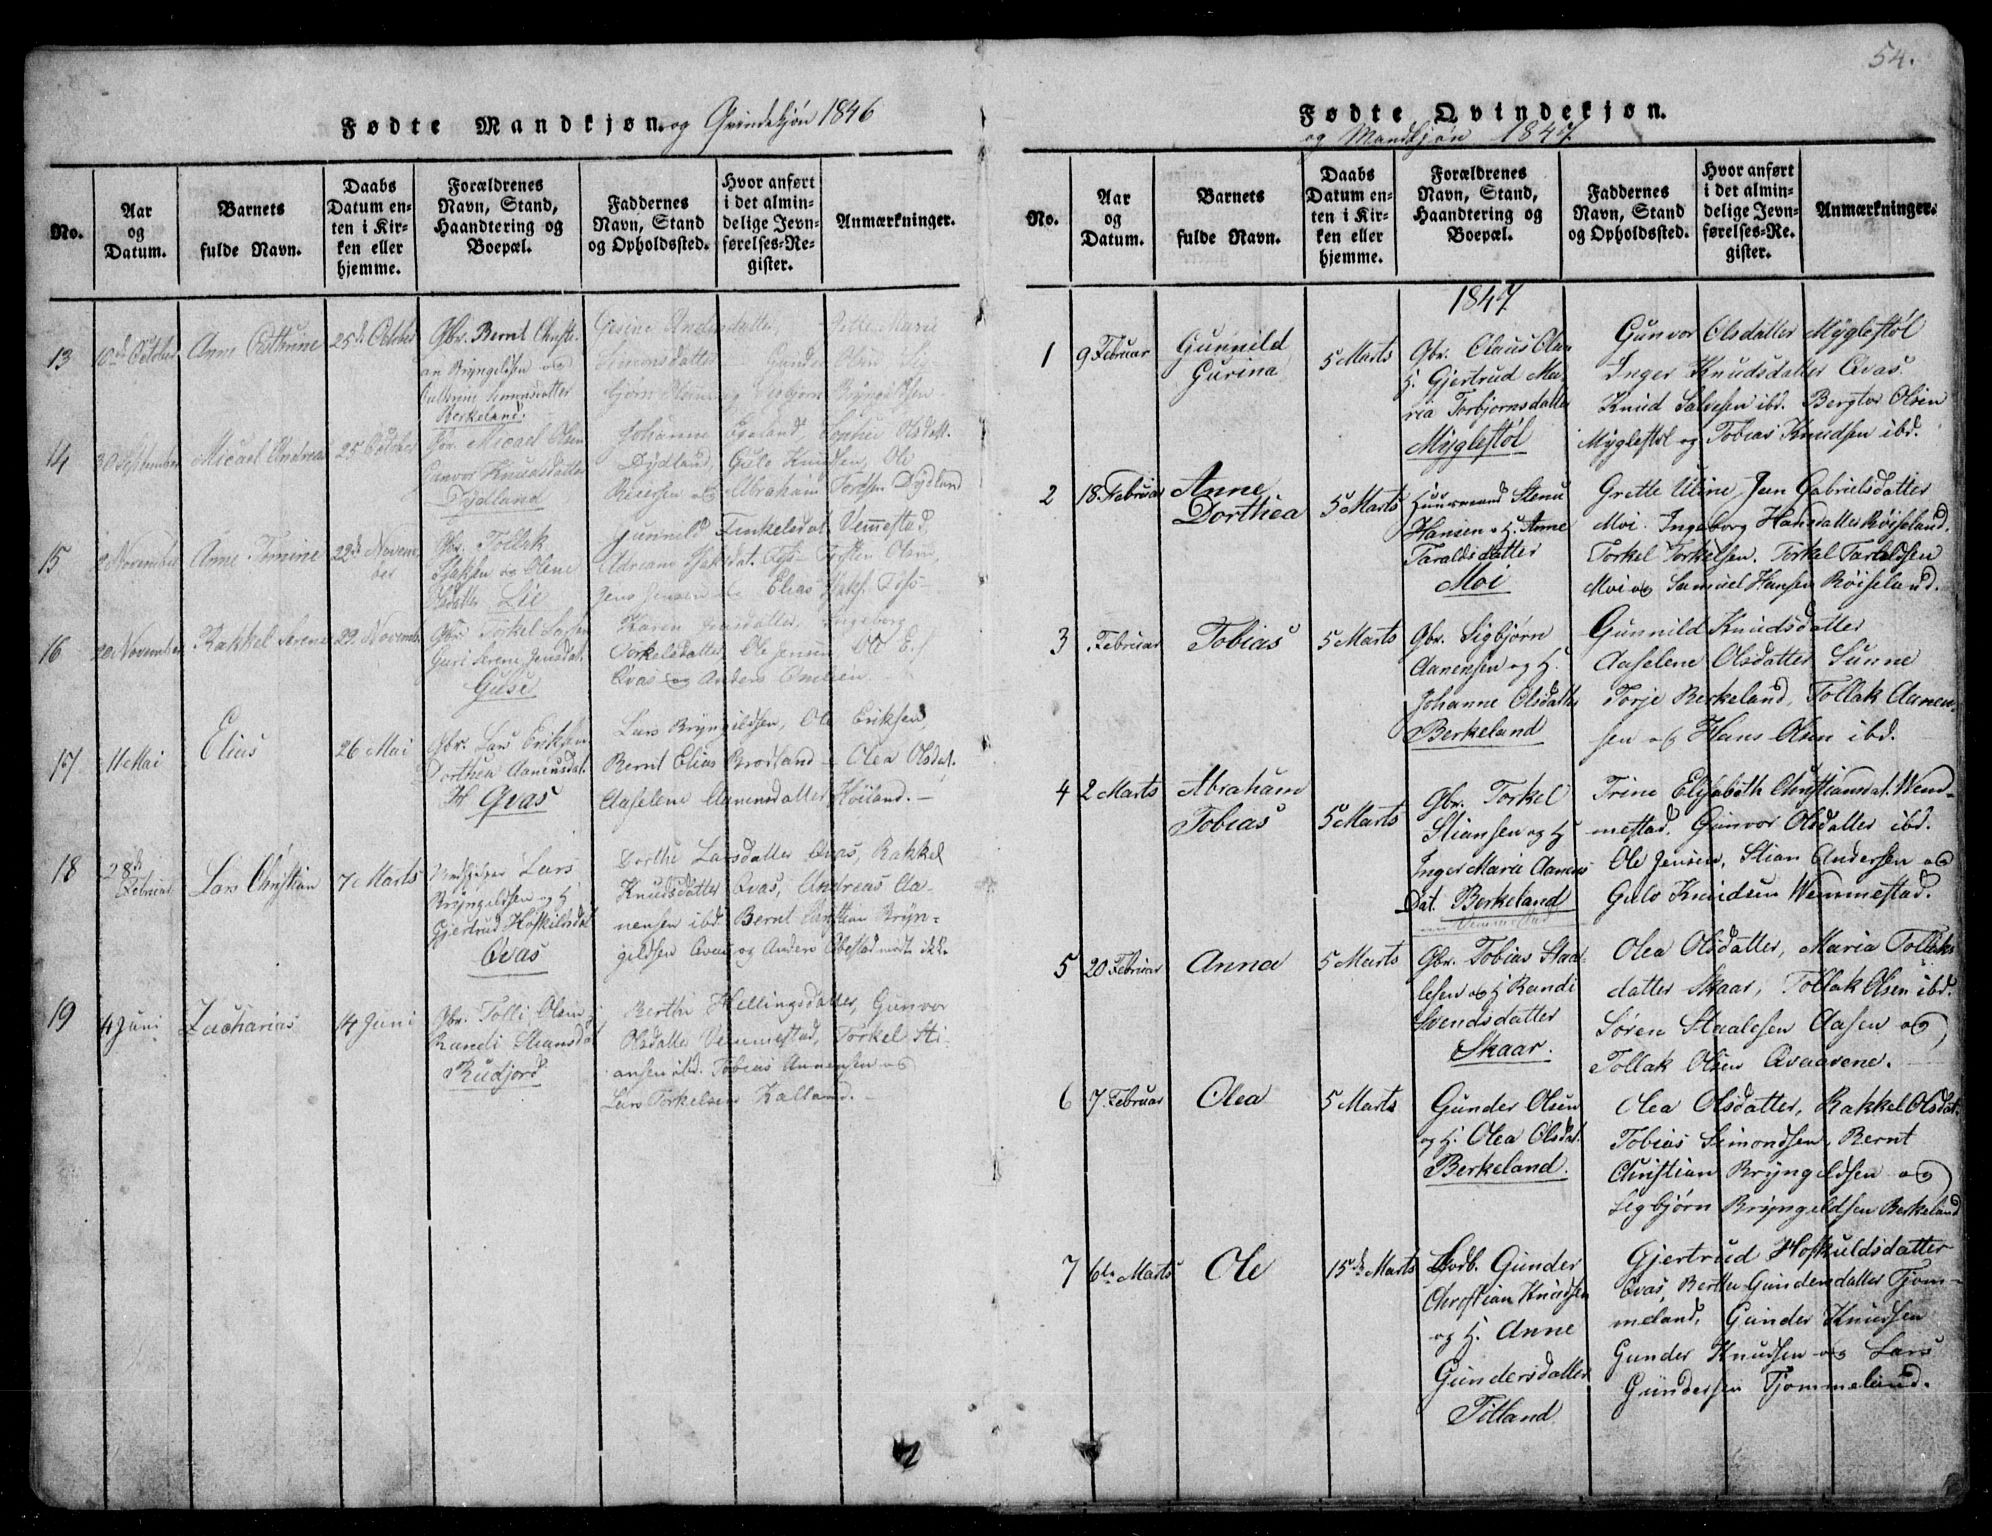 54.
Fødte Mandkjøn og Qvindekjön 1846
No.
Aar og Datum.
Barnets fulde Navn.
Daabs Datum enten i Kirken eller hjemme.
Forældrenes Navn, Stand, Haandtering og Boepæl.
Faddernes Navn, Stand og Opholdssted.
Hvor anført i det almindelige Jevnførelses-Register.
Anmærkninger.
13
10de October
Anne Cathrine
25de October
Gbr. Bernt Christi-
an Bryngeldsen og
Cathrine Simonsdatter
Berkeland.
Gesine Andersdatter,
Simonsdatter
14
30 September
Micael Andreas
25 October
Gbr. Micael Olsen
Gunvor Knudsdatter
Dydland
Johanne Egeland, Sophie Olsdatt.
Dydland, Gulo Knudsen, Ole
Reiersen og Abraham Dydland
15
2 November
Anne Tomine
22de Novem-
ber
Gbr. Tollak
Isaksen og Olene
Lie
Gunnild Tinkelsdat. Vemestad,
Adriane Isaksdat. Torsten Olsen,
Jens Jensen Elias Isaks.
16
20 November
Rakkel Serene
22 Novemb.
Gbr. Torkel Larsen
Guri Serene Jensdat.
Guse
Karen Jensdatter, Ingeborg
Torkelsdatter, Ole Jensen, Ole
Qvas og Anders
17
11 Mai
Elias
26 Mai
Gbr. Lars Eriksen
Dorthea Aanensdat.
Qvas
Lars Bryngeldsen, Ole Eriksen,
Bernt Elias Brodland – Olea Olsdat.
Aaselene Aanensdatter Höiland. –
18
28de Februar
Lars Christian
7 Marts
Lars
Bryngeldsen og H.
Gjertrud Hoskildsdat
Qvas
Dorthe Larsdatter Qvas, Rakkel
Knudsdatter Qvas, Andreas Aa-
nensen ibd. Bernt Christian Bryn-
geldsen Qvas og Anders Obestad mødt ikke
19
4 Juni
Zacharias
14 Juni
Gbr. Tolli Olsen,
Randi Stiansdat
Rudjord
Berthe Hellingsdatter, Gunvor
Olsdatter Vemmestad, Torkel Sti-
ansen ibd. Tobias Aanensen og
Lars Torkelsen Kalland. –
Fødte Qvindekjøn.
og Mandkjøn 1847
No.
Aar og Datum.
Barnets fulde Navn.
Daabs Datum enten i Kirken eller hjemme.
Forældrenes Navn, Stand, Haandtering og Boepæl.
Faddernes Navn, Stand og Opholdssted.
Hvor anført i det almindelige Jevnførelses-Register.
Anmærkninger.
1847
1
9 Februar
Gunnild
Gurina
5 Marts
Gbr. Claus Olsen
H. Gjertrud Ma-
ria Torbjornsdatter
Mygleſtøl
Gunvor Olsdatter Mygleſtøl
Inger Knudsdatter Qvas.
Knud Salvesen ibd. Bergtor Olsen
Mygleſtøl og Tobias Knudsen ibd.
2
18 Februar
Anne
Dorthea
5 Marts
Huusmand Stenu
Hansen og H. Anne
Taraldsdatter
Moi
Grette Uline Jensgabrielsdatter
Moi. Ingeborg Hansdatter Röiseland.
Torkel Torkelsen. Torkel Taraldsen
Moi og Samuel Hansen Röiseland.
3
Februar
Tobias
5 Marts
Gbr. Sigbjørn
Aanensen og H.
Johanne Olsdatter
Berkeland
Gunnild Knudsdatter
Aaselene Olsdatter Sunne
Torje Berkeland, Tollak Aanen-
sen og Hans Olsen ibd.
4
2 Marts
Abraham
Tobias
5 Marts
Gbr. Torkel
Stiansen og H
Inger Maria Aanens
Dat. Berkeland
Vemmestad
Trine Elisabeth Christiansdat. Vem-
mestad. Gunvor Olsdatter ibd.
Ole Jensen, Stian Andersen og
Gulo Knudsen Wemmestad.
5
20 Februar
Anna
5 Marts
Gbr. Tobias Staa-
lesen og H Randi
Svendsdatter
Skaar.
Olea Olsdatter, Maria Tollaks
datter Skaar, Tollak Olsen ibd.
Søren Staalesen Aasen og
Tollak Olsen Qvaavene.
6
7 Februar
Olea
5 Marts
Gunder Olsen
og H. Olea Olsdat.
Berkeland.
Olea Olsdatter, Rakkel Olsdat.
Tobias Simondsen, Bernt
Christian Bryngeldsen og
Sigbjørn Bryngeldsen Berkeland
7
6te Marts
Ole
15de Marts
Gunder
Christian Knudsen
og H. Anne
Gundersdatter
Titland
Gjertrud Hoskuldsdatter
Qvas, Berthe Gundersdatter Tjom-
meland, Gunder Knudsen
Gunder Knudsen og Lars
Gundersen Tjommeland.